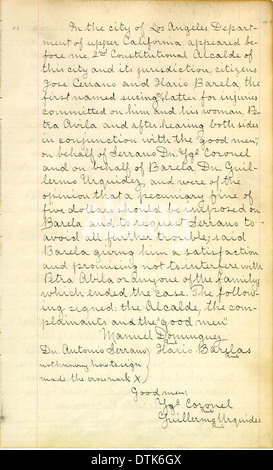 In the city of Los Angeles Depart-
ment of upper California, appeared be-
fore me, 2nd Constitutional Alcalde of
this city and its jurisdiction, citizens
Jose Serrano and Ilario Barela, the
first named sueing latter for injuries
committed on him and his woman Pe-
tra Avila and after hearing both sides
in conjunction with the "good men",
on behalf of Serrano Dn. Ygo Coronel
and on behalf of Barela Dn. Guil-
lermo Urquides, and were of the
opinion that a pecuniary fine of
five dollars should be imposed on
Barela and to request Serrano to
avoid all further trouble, said
Barela giving him a satisfaction
and promising not to interfere with
Petra Abila or anyone of the family
which ended the case. The follow-
ing signed; the Alcalde, the com-
plainants and the "good men"
Manuel Dominguez
Dn. Antonio Serrano Ilario Barelas
not knowing how to sign
made the cross mark X
Good men,
Ygo Coronel
Guillermo Urquides
alamy stock photo
DTK6GX